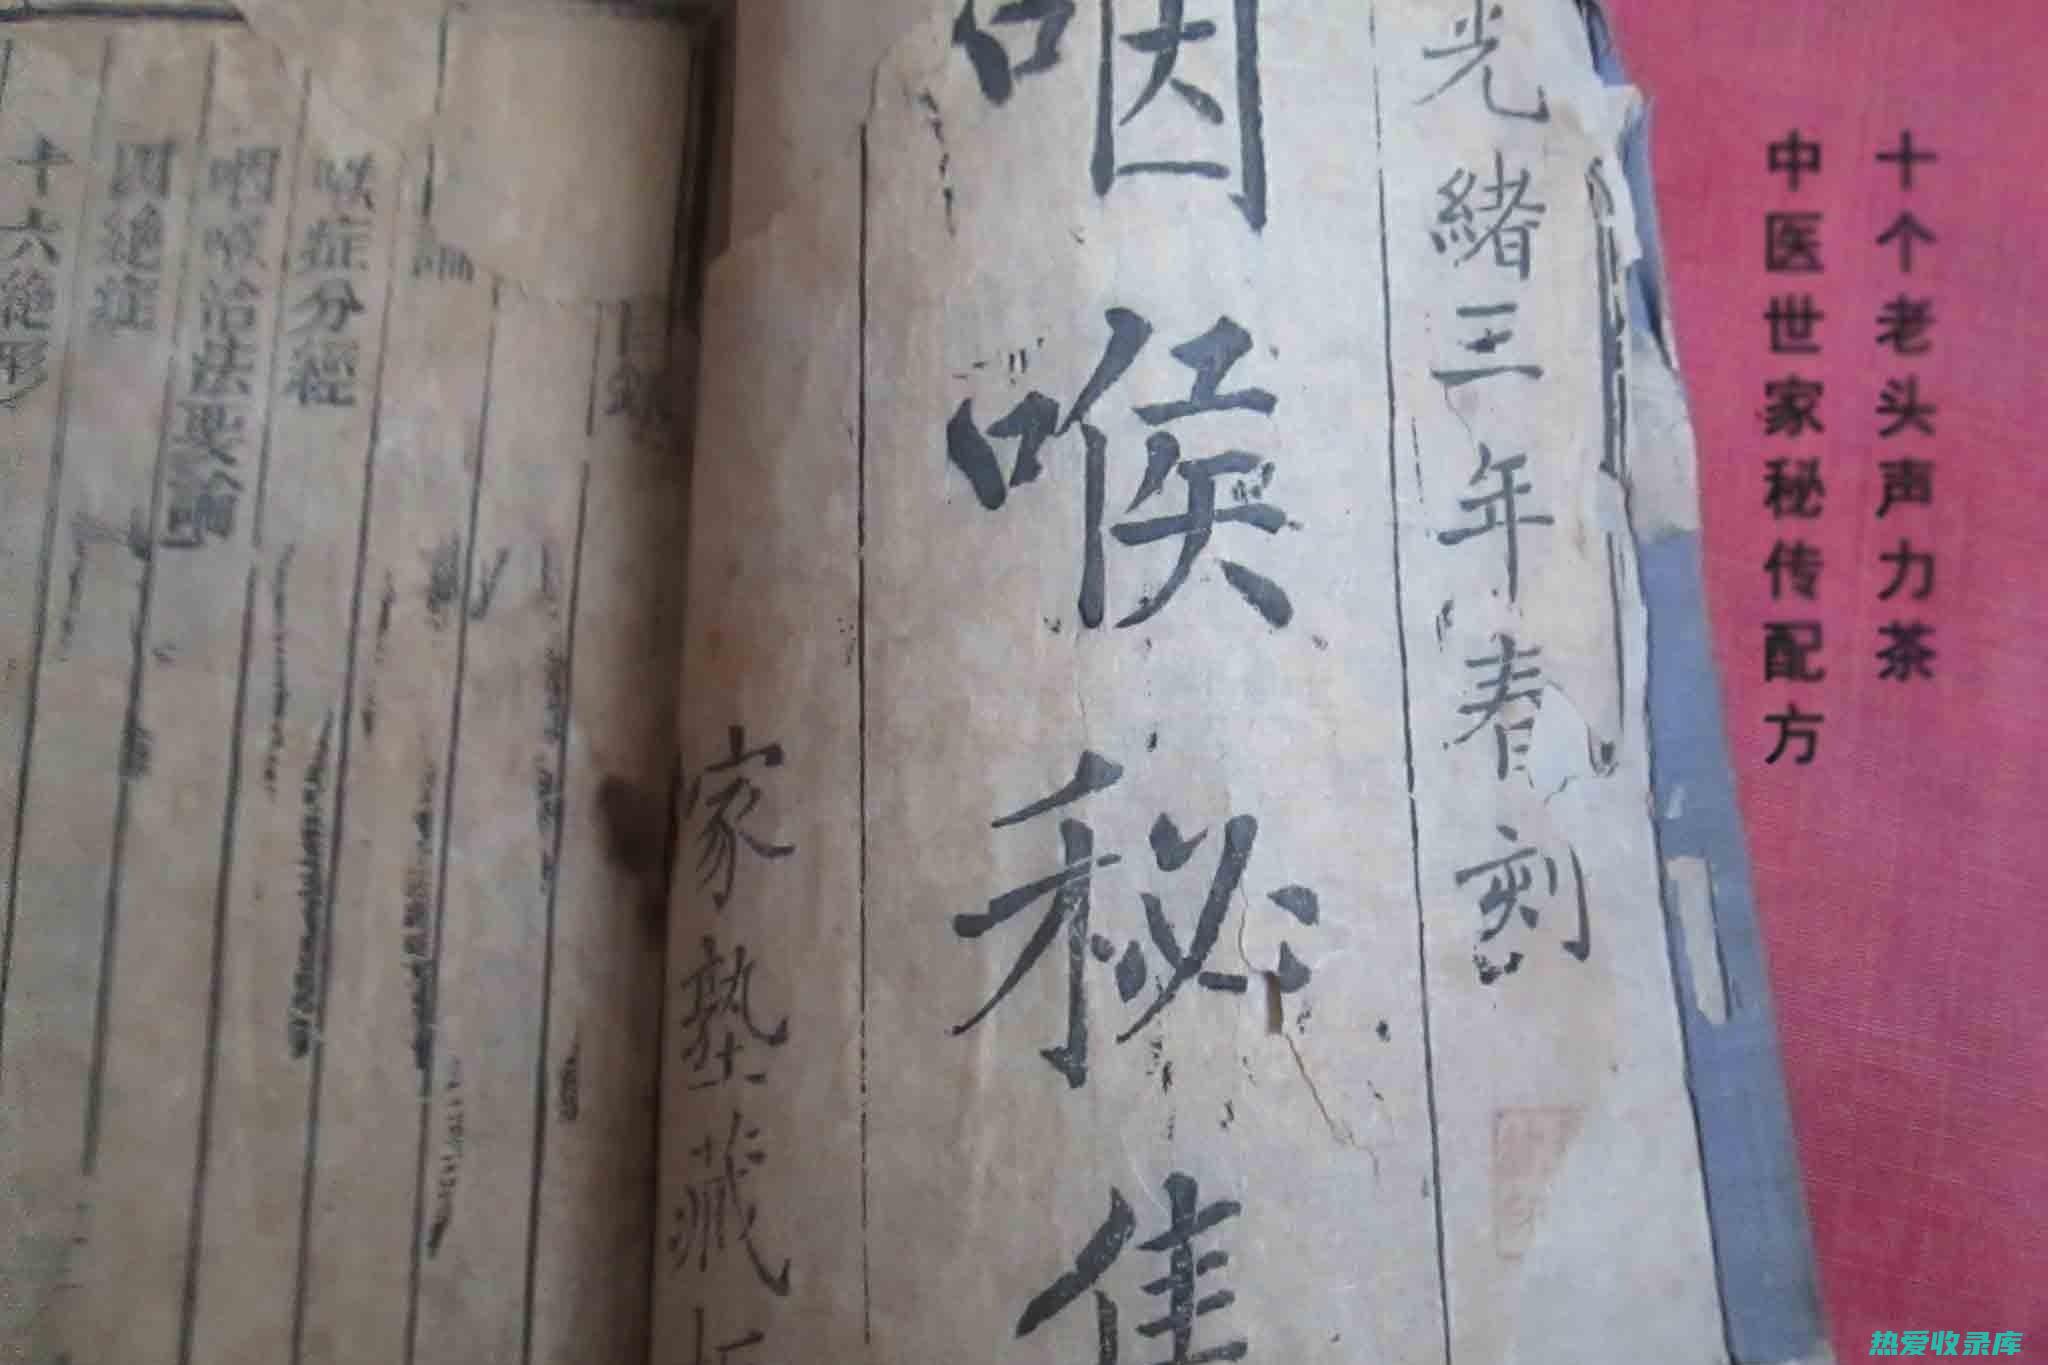 十个老头声力茶
中医世家秘传配方
光緒三年春刻
咽喉秘
家塾藏
目錄
喉症分經
咽喉治法要論
四絕症
十六絕形
热爱收录库